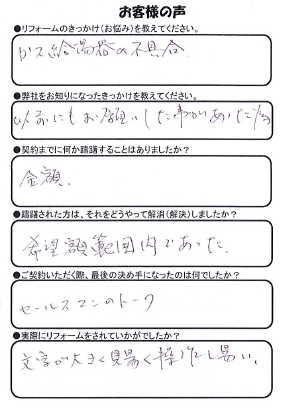 お客様の声
●リフォームのきっかけ(お悩み)を教えてください。
ガス給湯器の不具合.
●弊社をお知りになったきっかけを教えてください。
以前にもお願いした事があった為
●契約までに何か躊躇することはありましたか?
金額.
●躊躇された方は、それをどうやって解消(解決)しましたか?
希望額範囲内であった.
●ご契約いただく際、最後の決め手になったのは何でしたか?
セールスマンのトーク
●実際にリフォームをされていかがでしたか?
文字が大きく見易く操作し易い.